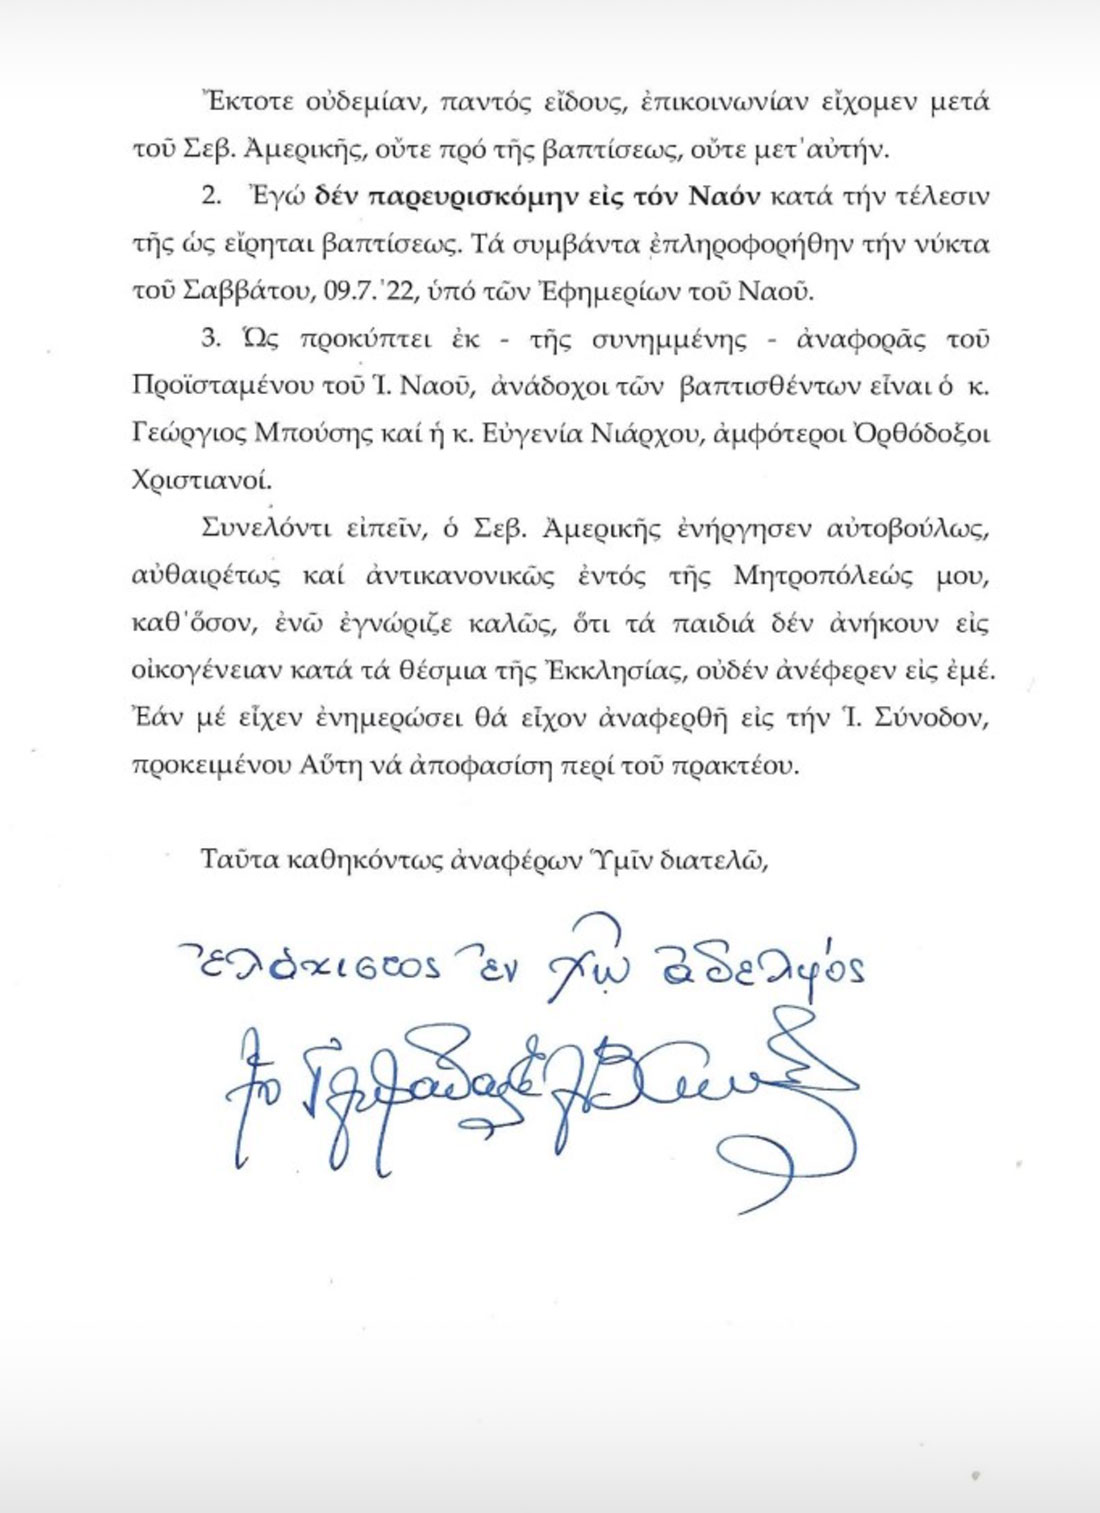 Ἔκτοτε οὐδεμίαν, παντός εἴδους, ἐπικοινωνίαν εἴχομεν μετά
τοῦ Σεβ. Ἀμερικῆς, οὔτε πρό τῆς βαπτίσεως, οὔτε μετ᾽αὐτήν.
2. Ἐγώ δέν παρευρισκόμην εἰς τόν Ναόν κατά τήν τέλεσιν
τῆς ὡς εἴρηται βαπτίσεως. Τά συμβάντα ἐπληροφορήθην τήν νύκτα
τοῦ Σαββάτου, 09.7.᾽22, ὑπό τῶν Ἐφημερίων τοῦ Ναοῦ.
3. Ὡς προκύπτει ἐκ - τῆς συνημμένης - ἀναφορᾶς τοῦ
Προϊσταμένου τοῦ Ἱ. Ναοῦ, ἀνάδοχοι τῶν βαπτισθέντων εἶναι ὁ κ.
Γεώργιος Μπούσης καί ἡ κ. Εὐγενία Νιάρχου, ἀμφότεροι Ὀρθόδοξοι
Χριστιανοί.
Συνελόντι εἰπεῖν, ὁ Σεβ. Ἀμερικῆς ἐνήργησεν αὐτοβούλως,
αὐθαιρέτως καί ἀντικανονικῶς ἐντός τῆς Μητροπόλεώς μου,
καθ᾽ὅσον, ἐνῶ ἐγνώριζε καλῶς, ὅτι τά παιδιά δέν ἀνήκουν εἰς
οἰκογένειαν κατά τά θέσμια τῆς Ἐκκλησίας, οὐδέν ἀνέφερεν εἰς ἐμέ.
Ἐάν μέ εἶχεν ἐνημερώσει θά εἶχον ἀναφερθῆ εἰς τήν Ἱ. Σύνοδον,
προκειμένου Αὕτη νά ἀποφασίση περί τοῦ πρακτέου.
Ταῦτα καθηκόντως ἀναφέρων Ὑμῖν διατελῶ,
ἐλάχιστος ἐν Χῷ ἀδελφός